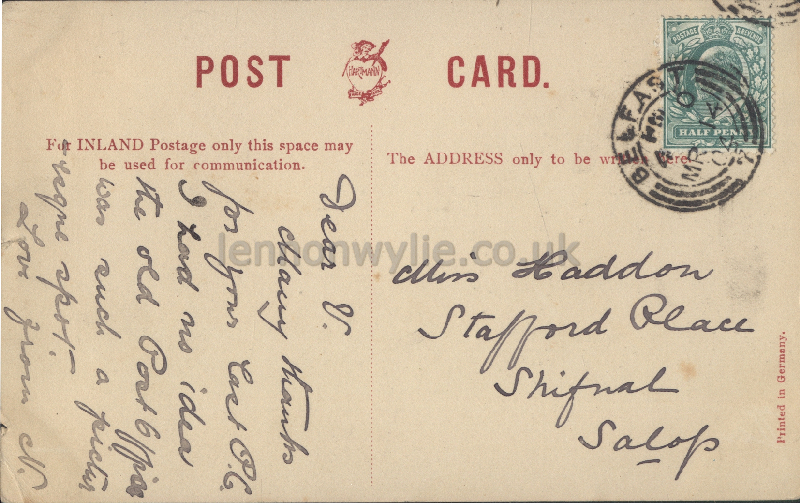 POST CARD.
HARTMANN
POSTAGE REVENUE
HALF PENNY
BELFAST
MR 14
04
For INLAND Postage only this space may
be used for communication.
The ADDRESS only to be written here
Dear V.
Many thanks
for yours Last P.C.
I had no idea
the old Post Office
was such a pictur
-esque spot.
Love from N.
Miss Haddon
Stafford Place
Shifnal
Salop
Printed in Germany.
lennonwylie.co.uk